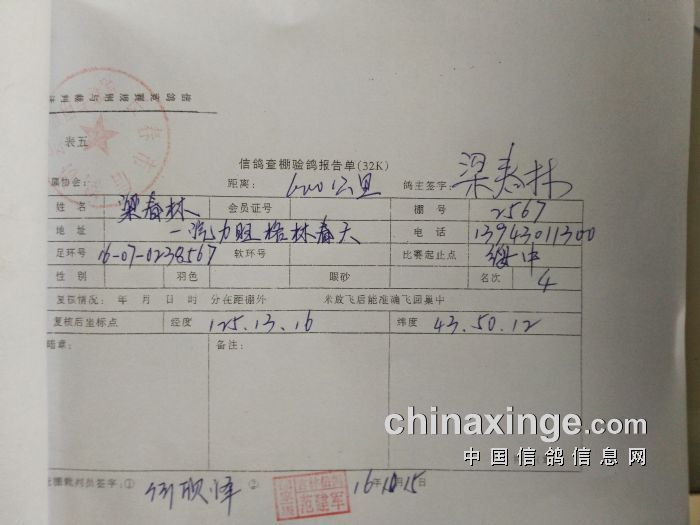 表五
信鸽查棚验鸽报告单(32K)
属协会: 距离: 600公里 鸽主签字: 梁春林
姓名 梁春林 会员证号 棚号 2567
地址 一汽力旺格林春天 电话 13943011300
足环号 16-07-0238567 软环号 比赛起止点
性别 羽色 眼砂 名次 4
复核情况: 年 月 日 时 分在距棚外 米放飞后能准确飞回巢中
复核后坐标点 经度 125.13.16 纬度 43.50.12
章: 备注:
chinaxinge.com
中国信鸽信息网
棚裁判员签字:① ② 范建军 16年10月15日